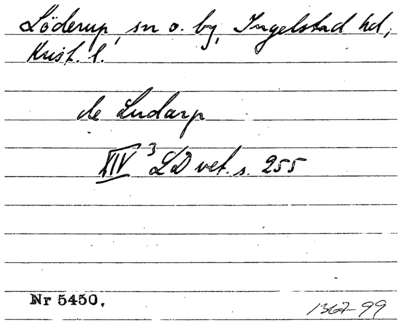 Löderup, sn o. by, Ingelstad hd,
Krist. l.
de Ludarp
XIV 3 LD vet. s. 255
Nr 5450.
1367-99